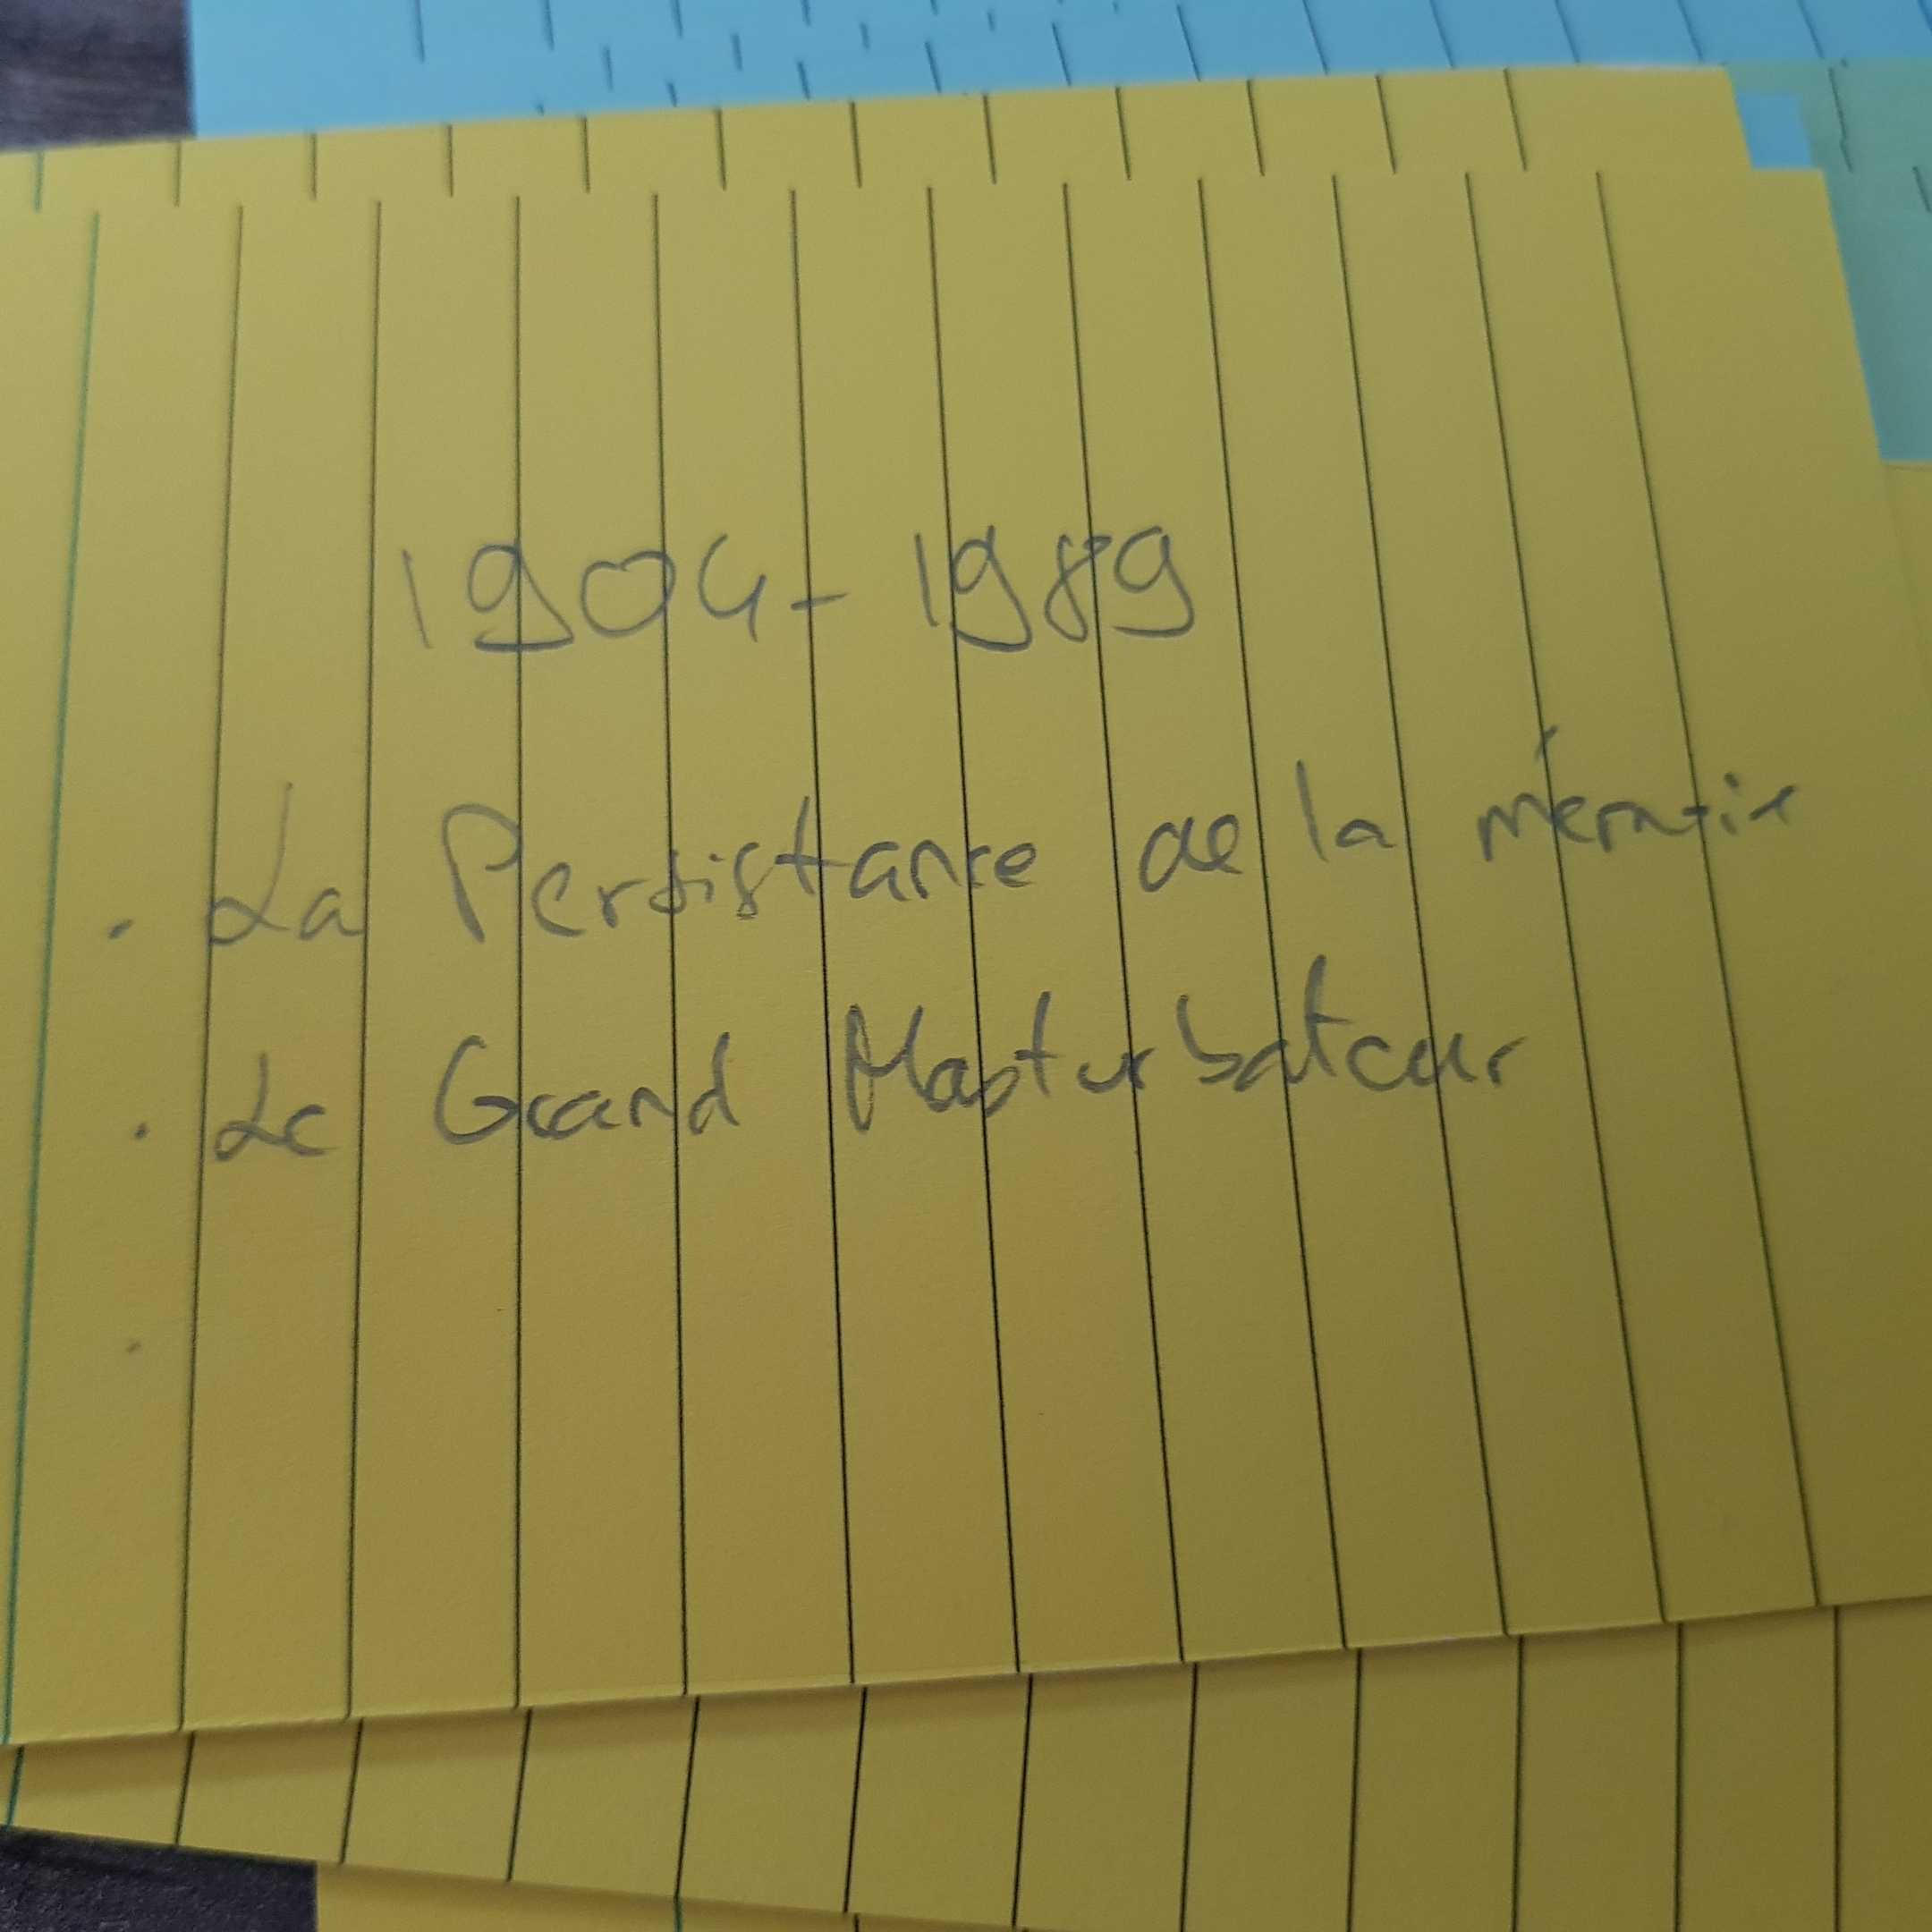 1904 - 1989
• La Persistance de la mémoire
• Le Grand Masturbateur
•